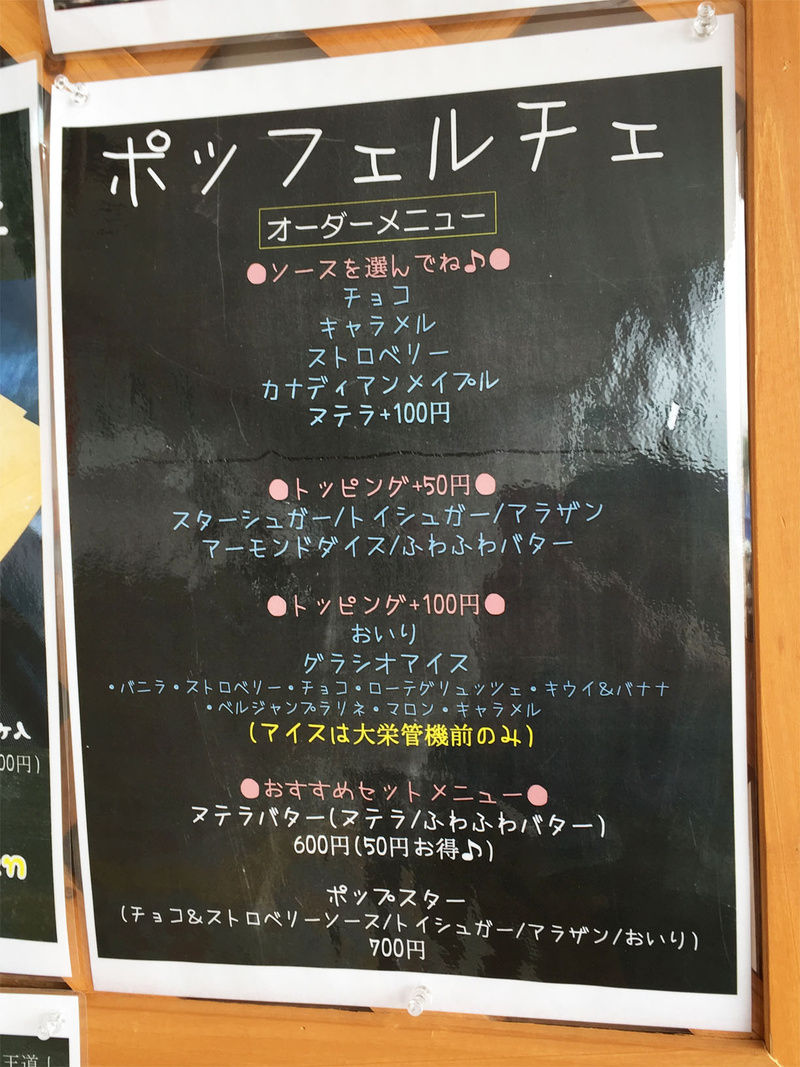 ポッフェルチェ
オーダーメニュー
●ソースを選んでね♪●
チョコ
キャラメル
ストロベリー
カナディアンメイプル
ヌテラ+100円
●トッピング+50円●
スターシュガー/トイシュガー/アラザン
アーモンドダイス/ふわふわバター
●トッピング+100円●
おいり
グラシオアイス
・バニラ・ストロベリー・チョコ・ローテグリュッツェ・キウイ&バナナ
・ベルジャンプラリネ・マロン・キャラメル
(アイスは大栄管機前のみ)
●おすすめセットメニュー●
ヌテラバター(ヌテラ/ふわふわバター)
600円(50円お得♪)
ポップスター
(チョコ&ストロベリーソース/トイシュガー/アラザン/おいり)
700円
00円)
王道!